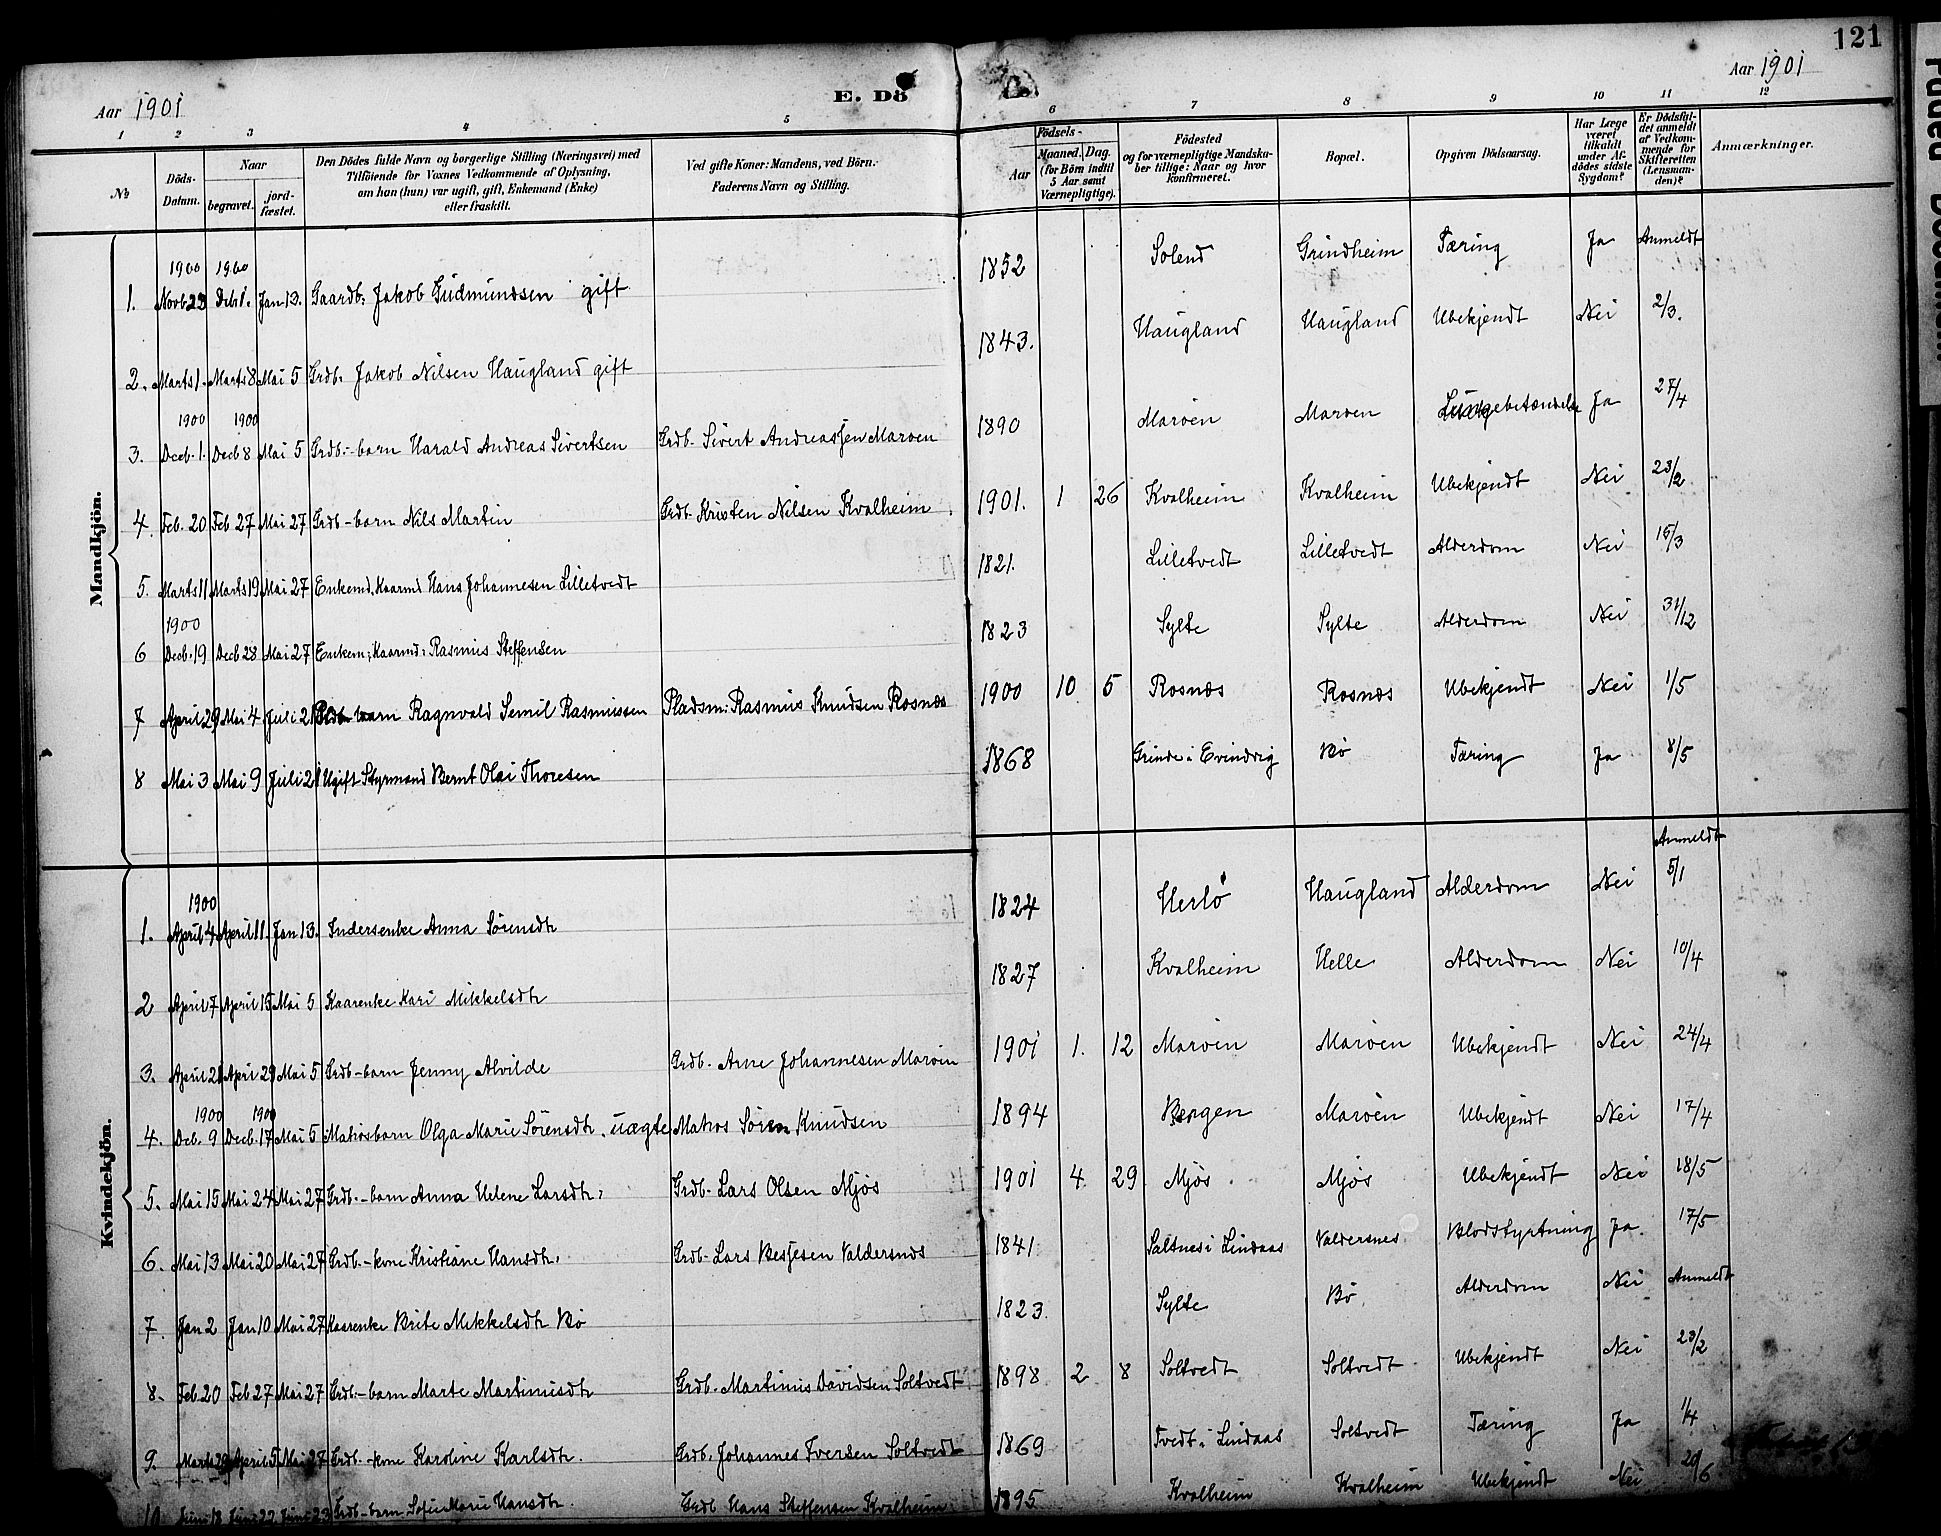 121
Aar 1901
E. Dö
Aar 1901
1 2 3 4 5 6 7 8 9 10 11 12
№
Döds-Datum.
Naar
begravet. jord-fæstet.
Den Dödes fulde Navn og borgerlige Stilling (Næringsvei) med Tilföiende for Voxnes Vedkommende af Oplysning, om han (hun) var ugift, gift, Enkemand (Enke) eller fraskilt.
Ved gifte Koner: Mandens, ved Börn: Faderens Navn og Stilling.
Födsels-
Aar
Maaned. Dag.
(for Börn indtil 5 Aar samt Værnepligtige).
Födested og for værnepligtige Mandska-ber tillige: Naar og hvor konfirmeret.
Bopæl.
Opgiven Dödsaarsag.
Har Læge været tilkaldt under Af-dödes sidste Sygdom?
Er Dödsfal-det anmeldt af Vedkom-mende for Skifteretten (Lensman-den)?
Anmærkninger.
Mandkjön.
1. 1900 Novb 23 1900 Deb 1. Jan 13. Gaardb: Jakob Gudmundsen gift 1852 Solend Grindheim Tæring Ja Anmeldt
2. Marts 1. Marts 8 Mai 5 Grdb. Jakob Nilsen Haugland gift 1843. Haugland Haugland Ubekjendt Nei 2/3.
3. 1900 Deeb. 1. 1900 Decb 8 Mai 5 Grdb:-barn Harald Andreas Sivertsen Grdb. Sivert Andreassen Maroen 1890 Maroen Maroen Lungebetændelse Ja 27/4
4. Feb. 20 Feb 27 Mai 27 Grdb-barn Nils Martin Grdb. Kristen Nilsen Kvalheim 1901. 1 26 Kvalheim Kvalheim Ubekjendt Nei 23/2
5. Marts 11 Marts 19 Mai 27 Enkemd. Kaarmd Hans Johannesen Lilletvedt 1821. Lilletvedt Lilletvedt Alderdom Nei 15/3
6 1900 Decb. 19 Decb 28 Mai 27 Enkem; Kaarmd: Rasmus Steffensen 1823 Sylte Sylte Alderdom Nei 31/12
7 April 29 Mai 4 Juli 21 barn Ragnvald Semil Rasmussen Pladsm: Rasmus Knudsen Rosnæs 1900 10 5 Rosnæs Rosnæs Ubekjendt Nei 1/5
8 Mai 3 Mai 9 Juli 21 Ugift Styrmand Bernt Olai Thoresen 1868 Grinde i Evindvig Bø Tæring Ja 8/5
Kvindekjön.
1. 1900 April 4 April 11. Jan 13. Indersenke Anna Sørensdtr 1824 Herlø Haugland Alderdom Nei Anmeldt 5/1
2 April 7 April 15 Mai 5 Kaarenke Kari Mikkelsdtr 1827 Kvalheim Helle Alderdom Nei 10/4
3. April 21 April 29 Mai 5 Grdb-barn Jenny Alvilde Grdb. Arne Johannesen Maroen 1901 1. 12 Maroen Maroen Ubekjendt Nei 24/4
4. 1900 Dec. 9 1900 Decb. 17 Mai 5 Matrosbarn Olga Marie Sörensdtr. uægte Matros Sören Knudsen 1894 Bergen Maroen Ubekjendt Nei 17/4
5. Mai 15 Mai 24 Mai 27 Grdb.-barn Anna Helene Larsdtr. Grdb. Lars Olsen Mjøs 1901 4 29 Mjøs Mjøs Ubekjendt Nei 18/5
6. Mai 13 Mai 20 Mai 27 Grdb.-kone Kristiane Hansdtr. Grdb. Lars Besjesen Valdersnæs 1841 Saltnes i Lindaas Valdersnes Blodstyrtning Ja. 17/5
7. Jan 2 Jan 10 Mai 27 Kaarenke Brite Mikkelsdtr Bø 1823 Sylte Bø Alderdom Nei Anmeldt
8. Feb. 20 Feb 27 Mai 27 Grdb.-barn Marte Martinusdtr Grdb. Martinus Davidsen Soltvedt 1898 2 8 Soltvedt Soltvedt Ubekjendt Nei 23/2
9. Marts 29 April 5 Mai 27 Grdb.-kone Karoline Karlsdtr. Grdb. Johannes Iversen Soltvedt 1869 Tvedt i Lindaas Soltvedt Tæring Ja 1/4
10 Juni 18 Juni 22 Juni 23 Grdb-barn Sofie Marie Hansdtr. Grdb Hans Steffensen Kvalheim 1895 Kvalheim Kvalheim Ubekjendt Nei 20/6